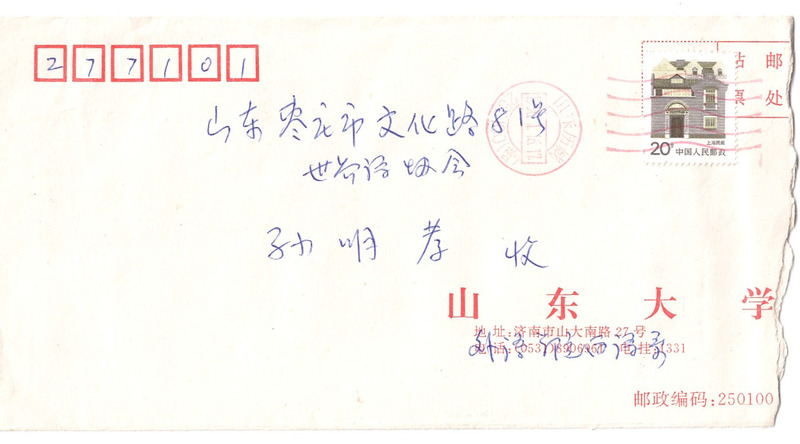 277101
贴邮
票处
山东枣庄市文化路81号
世界语协会
孙明孝 收
上海民居
20分 中国人民邮政
山东大学
地址:济南市山大南路27号
电话:(0531)8906961 电挂:1331
邮政编码:250100